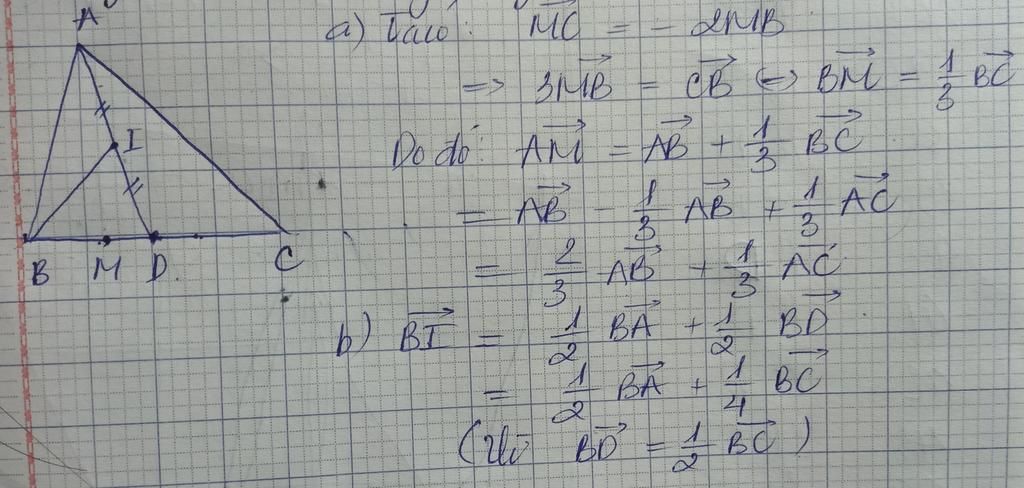 A
I
B M D. C
a) Ta có: $\overrightarrow{MC}$ = - 2MB
=> 3$\overrightarrow{MB}$ = $\overrightarrow{CB}$ <=> $\overrightarrow{BM}$ = $\frac{1}{3}$ $\overrightarrow{BC}$
Do đó: $\overrightarrow{AM}$ = $\overrightarrow{AB}$ + $\frac{1}{3}$ $\overrightarrow{BC}$
= $\overrightarrow{AB}$ - $\frac{1}{3}$ $\overrightarrow{AB}$ + $\frac{1}{3}$ $\overrightarrow{AC}$
= $\frac{2}{3}$ $\overrightarrow{AB}$ + $\frac{1}{3}$ $\overrightarrow{AC}$
b) $\overrightarrow{BI}$ = $\frac{1}{2}$ $\overrightarrow{BA}$ + $\frac{1}{2}$ $\overrightarrow{BD}$
= $\frac{1}{2}$ $\overrightarrow{BA}$ + $\frac{1}{4}$ $\overrightarrow{BC}$
(Vì $\overrightarrow{BD}$ = $\frac{1}{2}$ $\overrightarrow{BC}$)